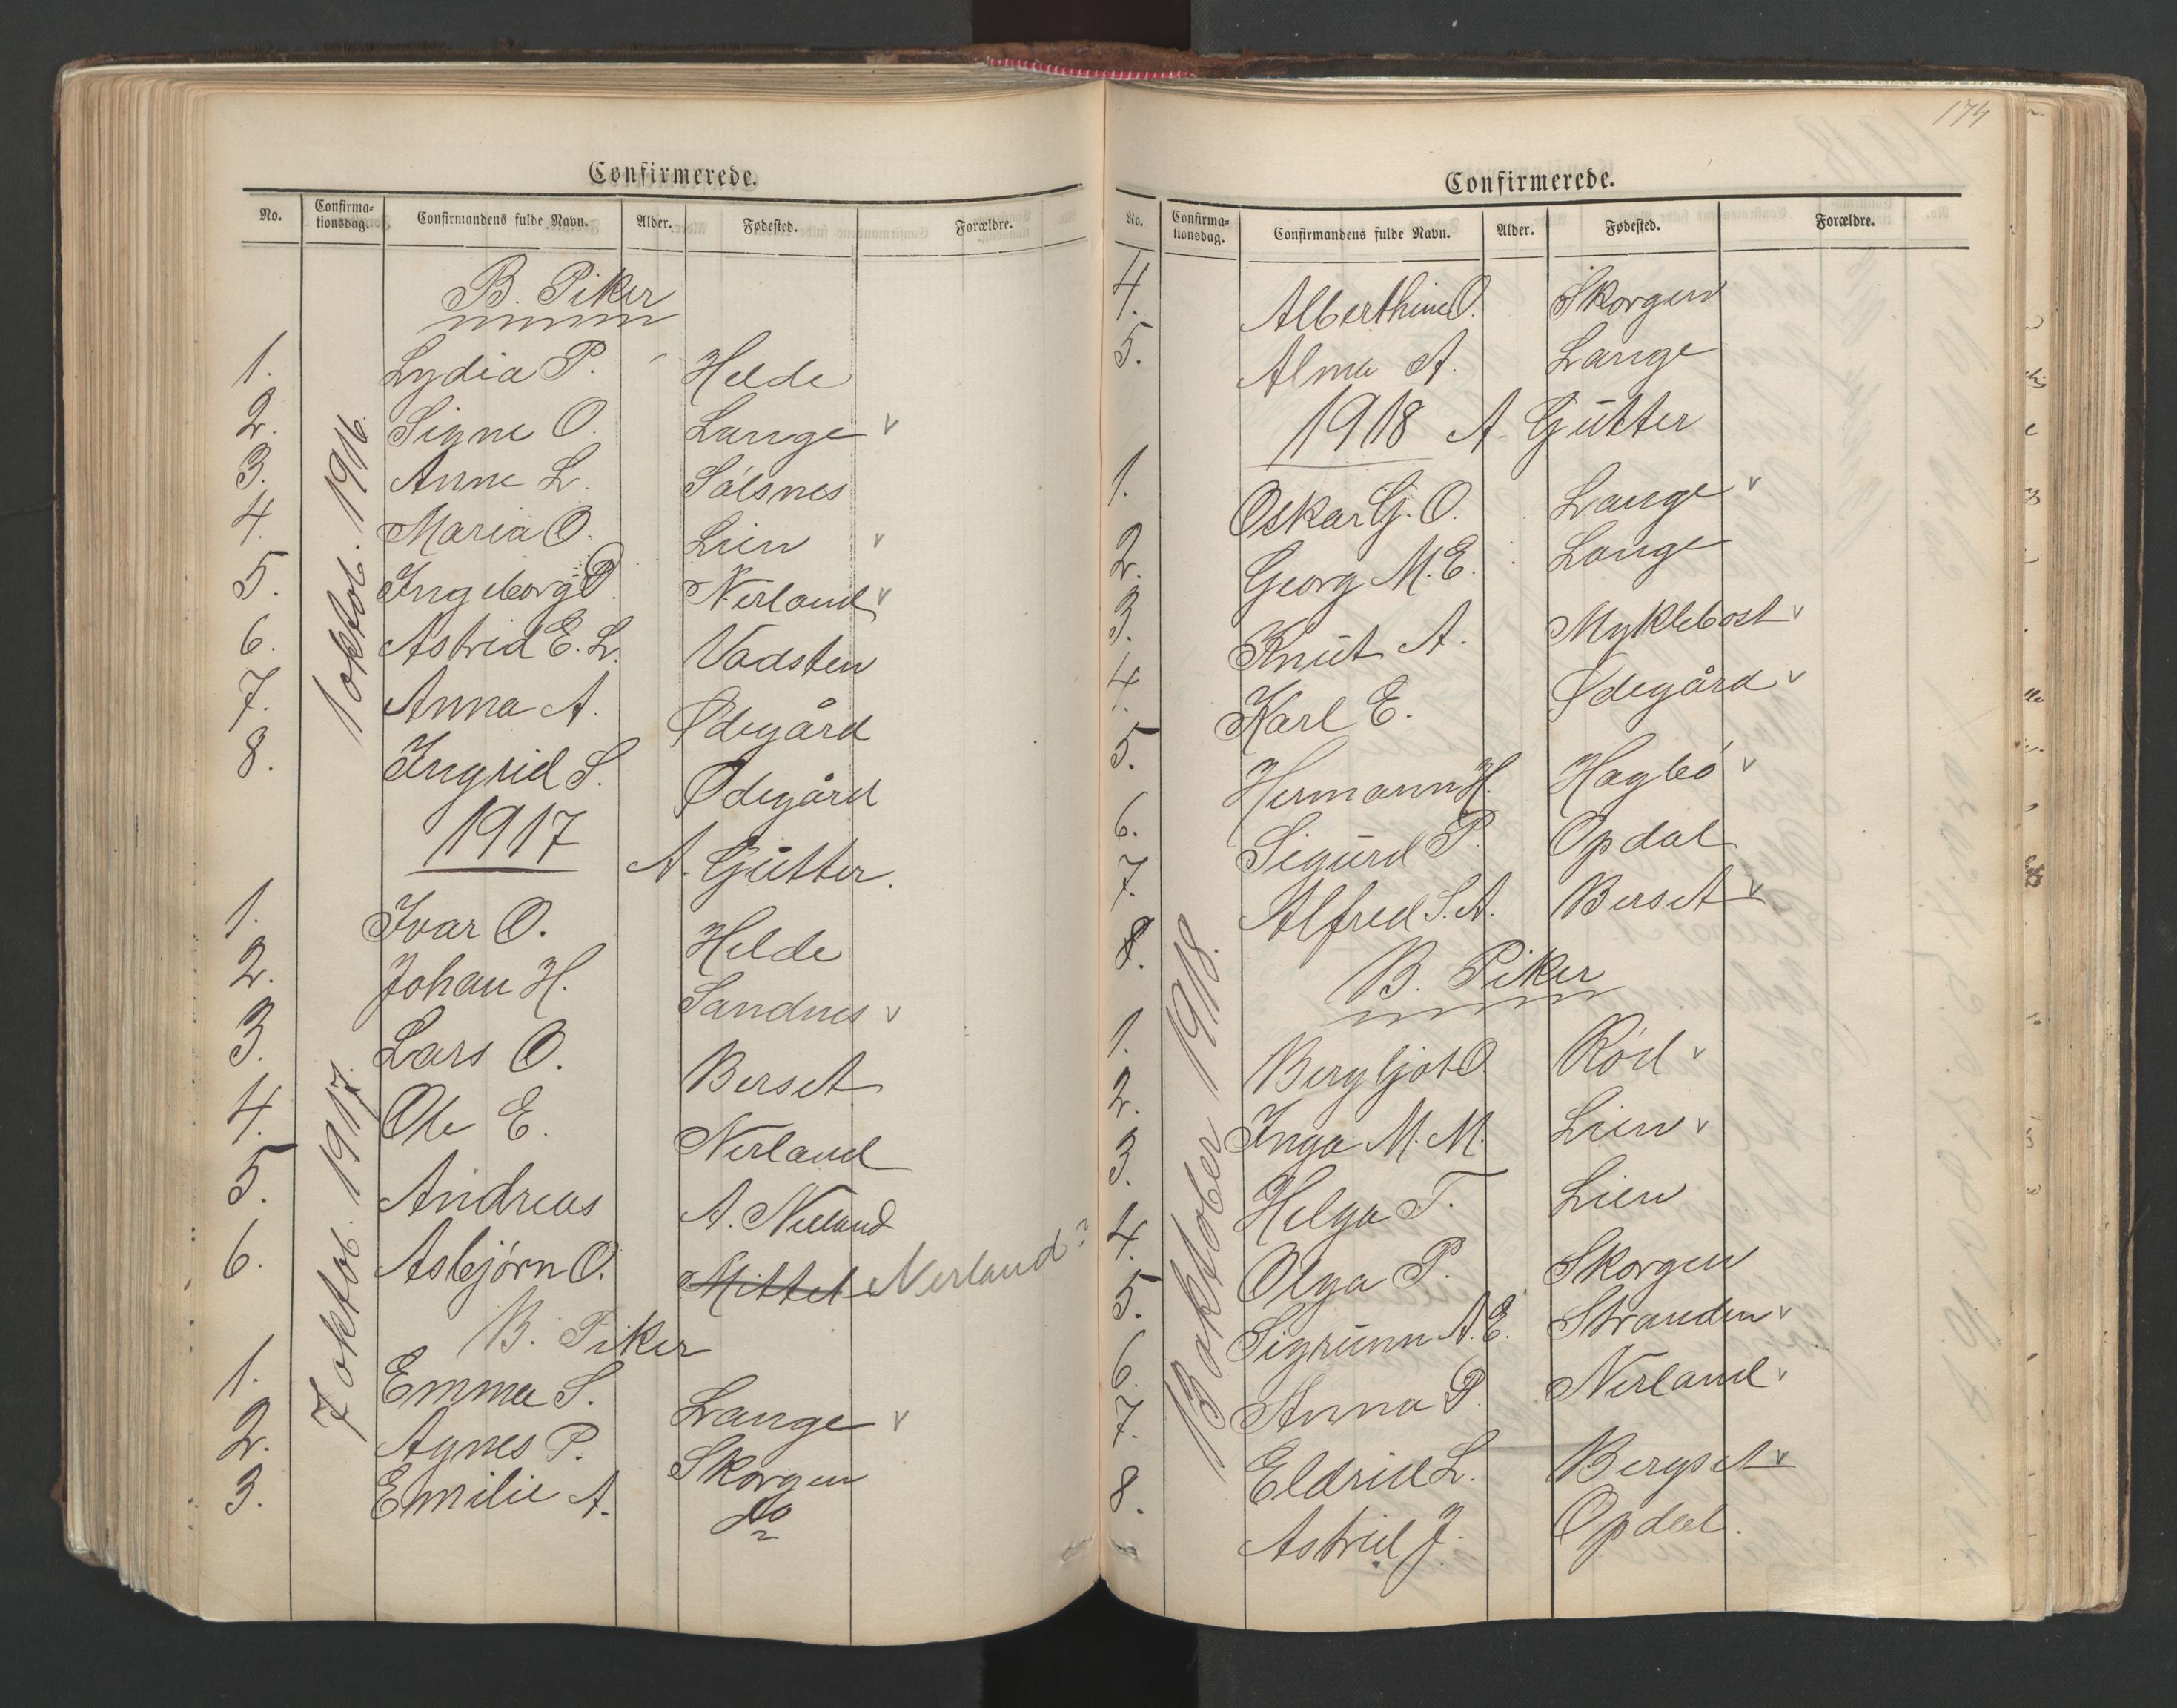 Confirmerede.
No. Confirma-tionsdag. Confirmandens fulde Navn. Alder. Fødested. Forældre.
B. Piker
1 oktob. 1916.
1. Lydia P. Helde
2. Signe O. Lange v
3. Anne L. Sólsnes
4. Maria O. Lien v
5. Ingeborg P. Nerland v
6. Astrid E. L. Vadsten
7. Anna A. Ødegård
8. Ingrid S. Ødegård
1917 A. Gutter.
7 oktob. 1917.
1. Ivar O. Helde
2. Johan H. Sandnes v
3. Lars O. Berset
4. Ole E. Nerland
5. Andreas A. Nerland
6. Asbjórn O. Mittet Nerland?
B. Piker
1. Emma S. Lange v
2. Agnes P. Skorgen
3. Emilie A. do
174
Confirmerede.
No. Confirma-tionsdag. Confirmandens fulde Navn. Alder. Fødested. Forældre.
4. Alberthine O. Skorgen
5. Alma A. Lange
1918 A. Gutter
1. Oskar G. O. Lange v
2. Georg M. E. Lange
3. Knut A. Myklebost v
4. Karl E. Ødegård v
5. Hermann H. Hagbó v
6. Sigurd P. Opdal
7. Alfred S. A. Berset v
8.
B. Piker
13 oktober 1918.
1. Bergljot O Ród v
2. Inga M. M. Lien v
3. Helga T. Lien
4. Olga P. Skorgen
5. Sigrunn A. E. Stranden v
6. Anna P. Nerland v
7. Eldrid L. Bergset v
8. Astrid J. Opdal.